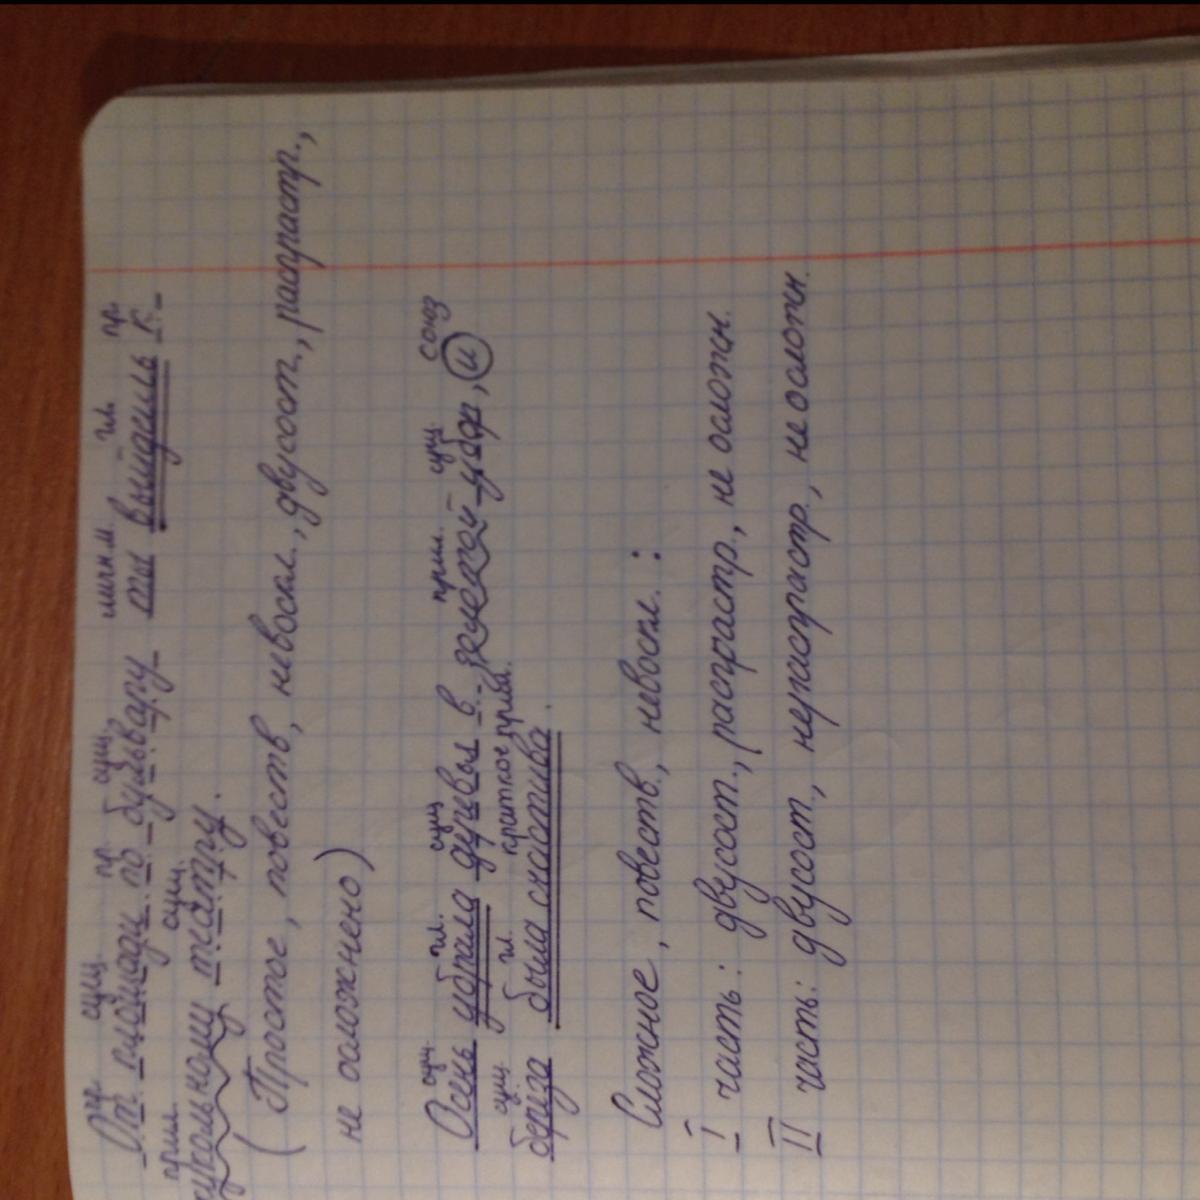 пр. сущ. пр. сущ. личн.м. гл. пр.
От площади по бульвару ты выйдешь к
прил. сущ.
кукольному театру.
(Простое, повеств., невоскл., двусост., распростр.,
не осложнено)
сущ. гл. сущ. прил. сущ. союз
Осень убрала деревья в золотой убор, и
сущ. гл. краткое прил.
береза была счастлива.
Сложное, повеств., невоскл.:
I часть: двусост., распростр., не осложн.
II часть: двусост., нераспростр., не осложн.